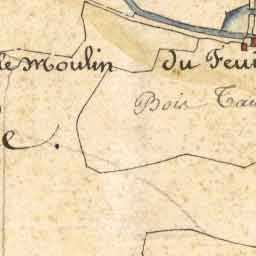 le Moulin du Feui
Bois Tai
e.